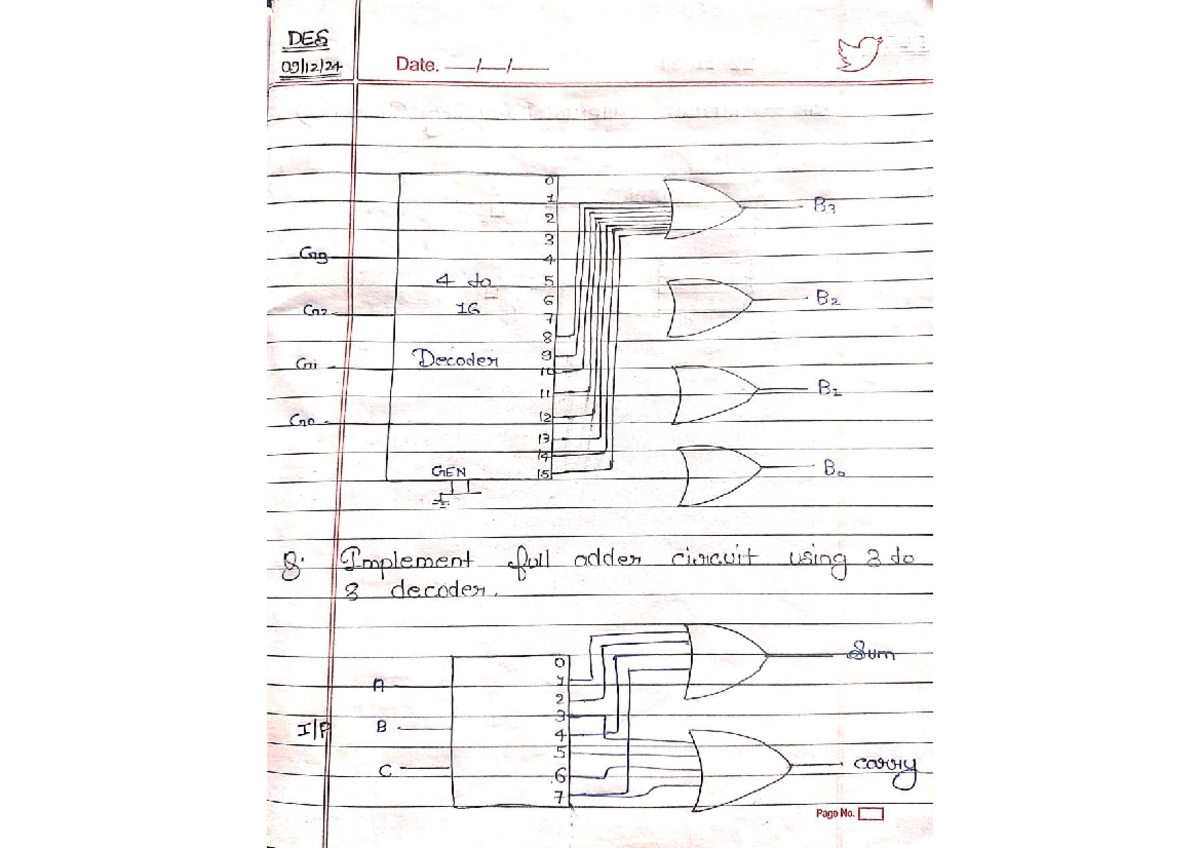 DES
09/12/24
Date. __/__/__
0
1
B3
2
3
G3
4
4 to
5
B2
6
G2
16
7
8
G1
Decoder
9
10
B1
11
G0
12
13
14
B0
GEN
15
Q. Implement full adder circuit using 3 to
8 decoder.
0
Sum
A
1
2
3
I/P
B
4
5
C
6
carry
7
Page No.